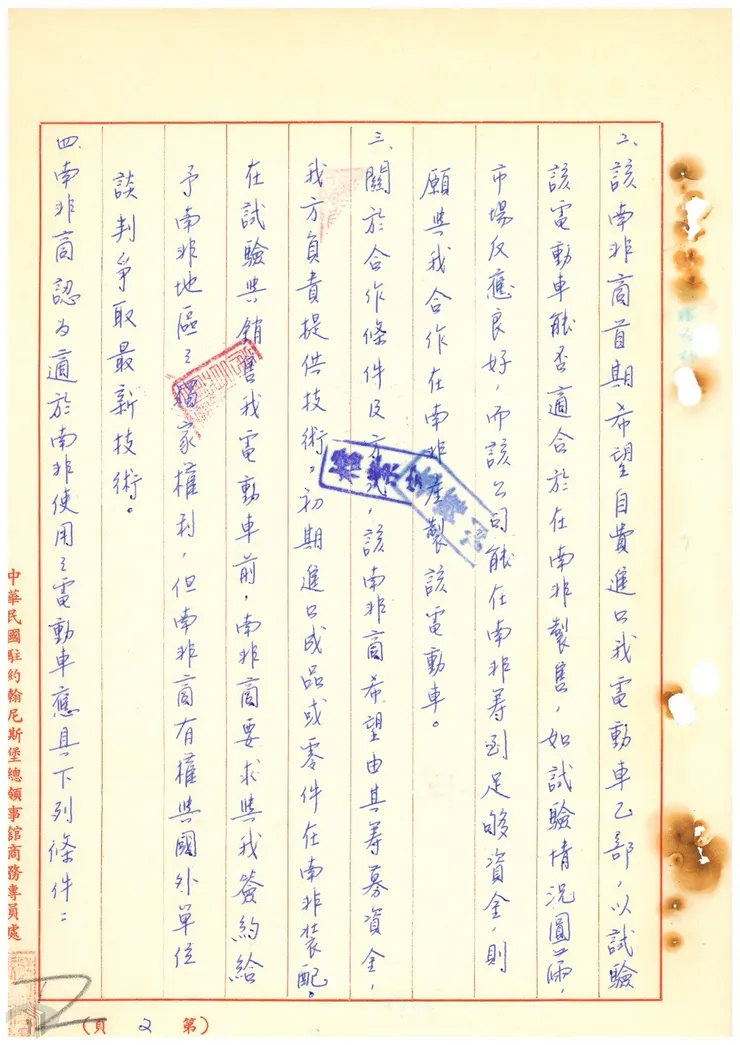 二、該南非商首期希望自費進口我電動車乙部，以試驗
該電動車能否適合於在南非製售，如試驗情況圓滿，
市場反應良好，而該公司能在南非籌到足夠資金，則
願與我合作在南非產製該電動車。
三、關於合作條件及方式，該南非商希望由其籌募資金，
我方負責提供技術。初期進口成品或零件在南非裝配。
在試驗與銷售我電動車前，南非商要求與我簽約給
予南非地區之獨家權利，但南非商有權與國外單位
談判爭取最新技術。
四、南非商認為適於南非使用之電動車應具下列條件：
中華民國駐約翰尼斯堡總領事館商務專員處
(第 2 頁)